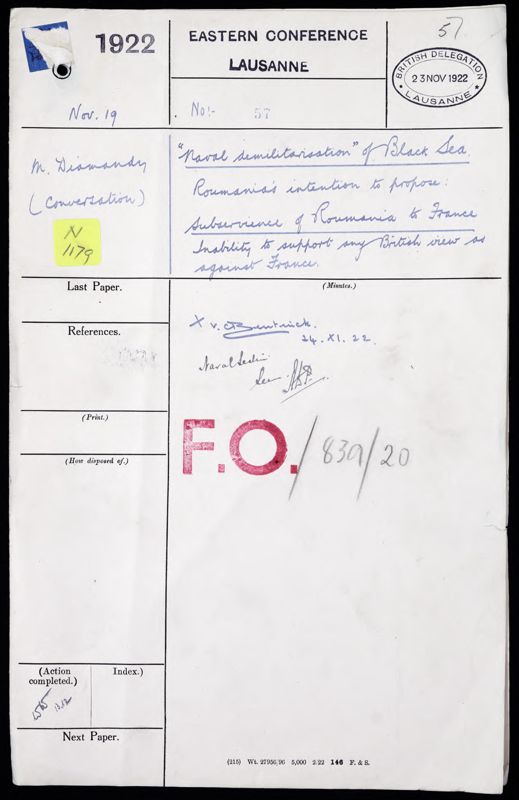 1922
EASTERN CONFERENCE
LAUSANNE
57
BRITISH DELEGATION
23 NOV 1922
LAUSANNE
Nov. 19
No:- 57
M. Diamandy
(Conversation)
N
1179
"Naval demilitarisation" of Black Sea.
Roumania's intention to propose:
Subservience of Roumania to France
Inability to support any British view as
against France.
Last Paper.
(Minutes.)
References.
X v. C Bentinck.
24. XI. 22.
Naval Section
See
(Print.)
F.O./839/20
(How disposed of.)
(Action
completed.)
Index.)
Next Paper.
(215) Wt. 27956/96 5,000 2/22 146 F. & S.